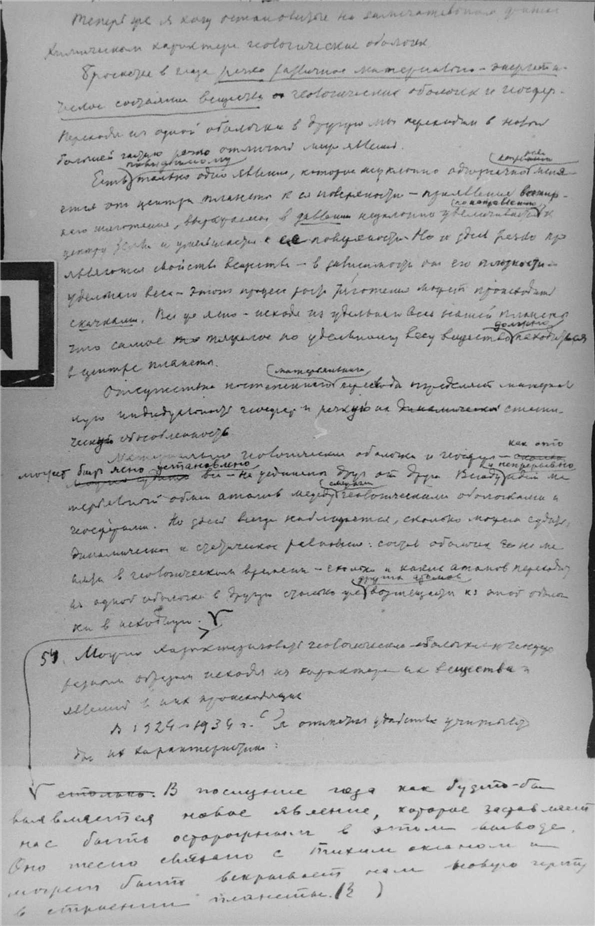 Теперь же я хочу остановиться на
химическом характере геологических оболочек.
Бросается в глаза резко различное материально-энергети-
ческое состояние вещества геологических оболочек и геосфер.
Переходя из одной оболочки в другую мы переходим в новый
большей частью резко отличный мир явлений.
повидимому
Есть только одно явление, которое неуклонно однозначно меня-
ется от центра планеты к её поверхности - проявление всемир-
по направлению
ного тяготения, выражаемое в давлении неуклонно увеличивается к
центру Земли и уменьшается к её поверхности. Но и здесь резко про
являются свойства вещества - в зависимости от его плотности -
удельного веса - этот процесс тяготения может происходить
скачками. Всё же ясно - исходя из удельного веса нашей планеты
должно
что самое тяжелое по удельному весу вещество находиться
в центре планеты.
материального
Отсутствие постепенного перехода определяет материаль
ную индивидуальность геосфер и резкую их динамически стати-
ческую обособленность
как это
Материально геологические оболочки и геосферы -
может быть ясно установлено все - не уединены друг от друга. Всюду идёт
и непрерывно
ма
териальный обмен атомов между геологическими оболочками и
геосферами. Но здесь всегда наблюдается, сколько можно судить,
динамическое и статическое равновесие: состав оболочек не ме
няется в геологическом времени - сколько и каких атомов переходит
других атомов
из одной оболочки в другую столько же возвращается из этой оболоч
ки в исходную. V
54. Можно характеризовать геологические оболочки и геосферы
разным образом исходя из характера их вещества и
явлений в них происходящих
В 1924-1934 г. я отметил удобство учитывать
для их характеристики:
V столько. В последние года как будто-бы
выявляется новое явление, которое заставляет
нас быть осторожными в этом выводе.
Оно тесно связано с Тихим океаном и
может быть вскрывает нам новую черту
в строении планеты.